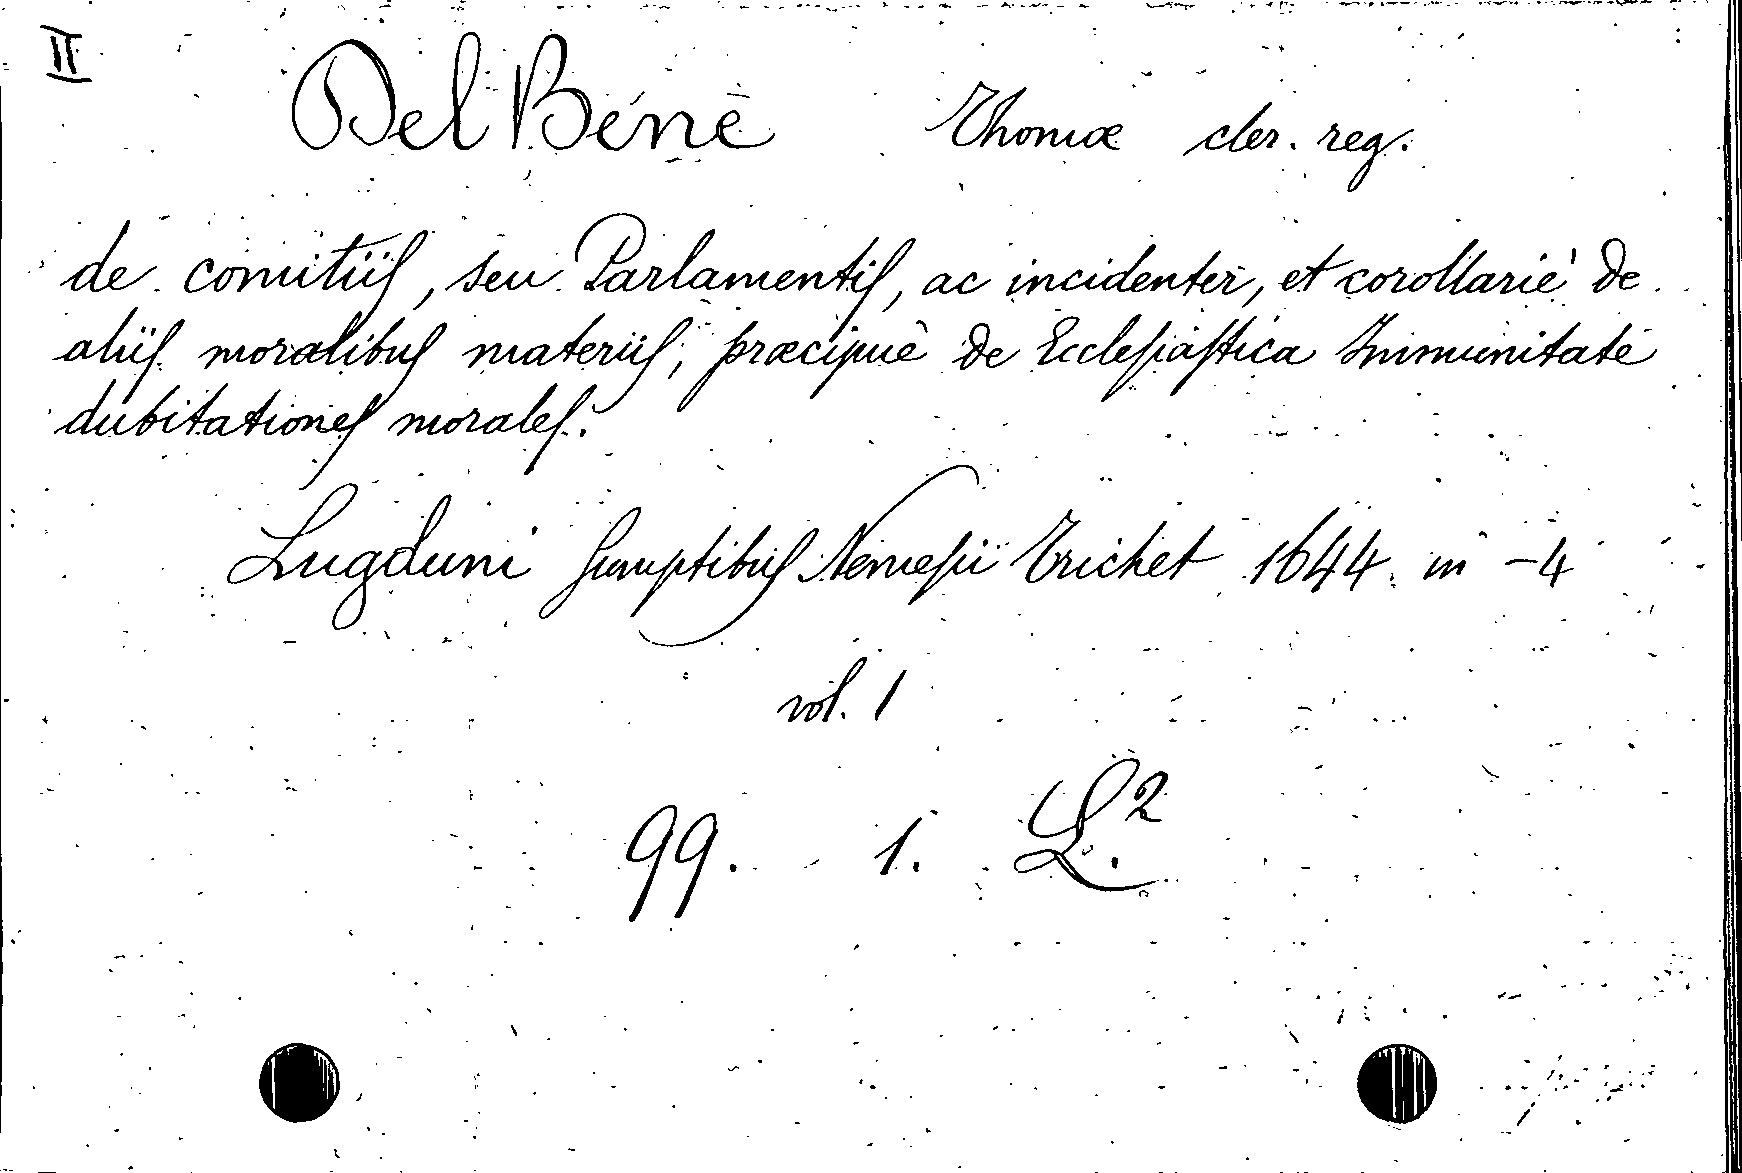 II
Del Bene Thomæ cler. reg.
de comitiis, seu Parlamentis, ac incidenter, et corollarie de
aliis moralibus materiis, præcipuè de Ecclesiastica Immunitate
dubitationes morales.
Lugduni sumptibus Nemesii Trichet 1644 in -4
vol. 1
99. 1. L.2